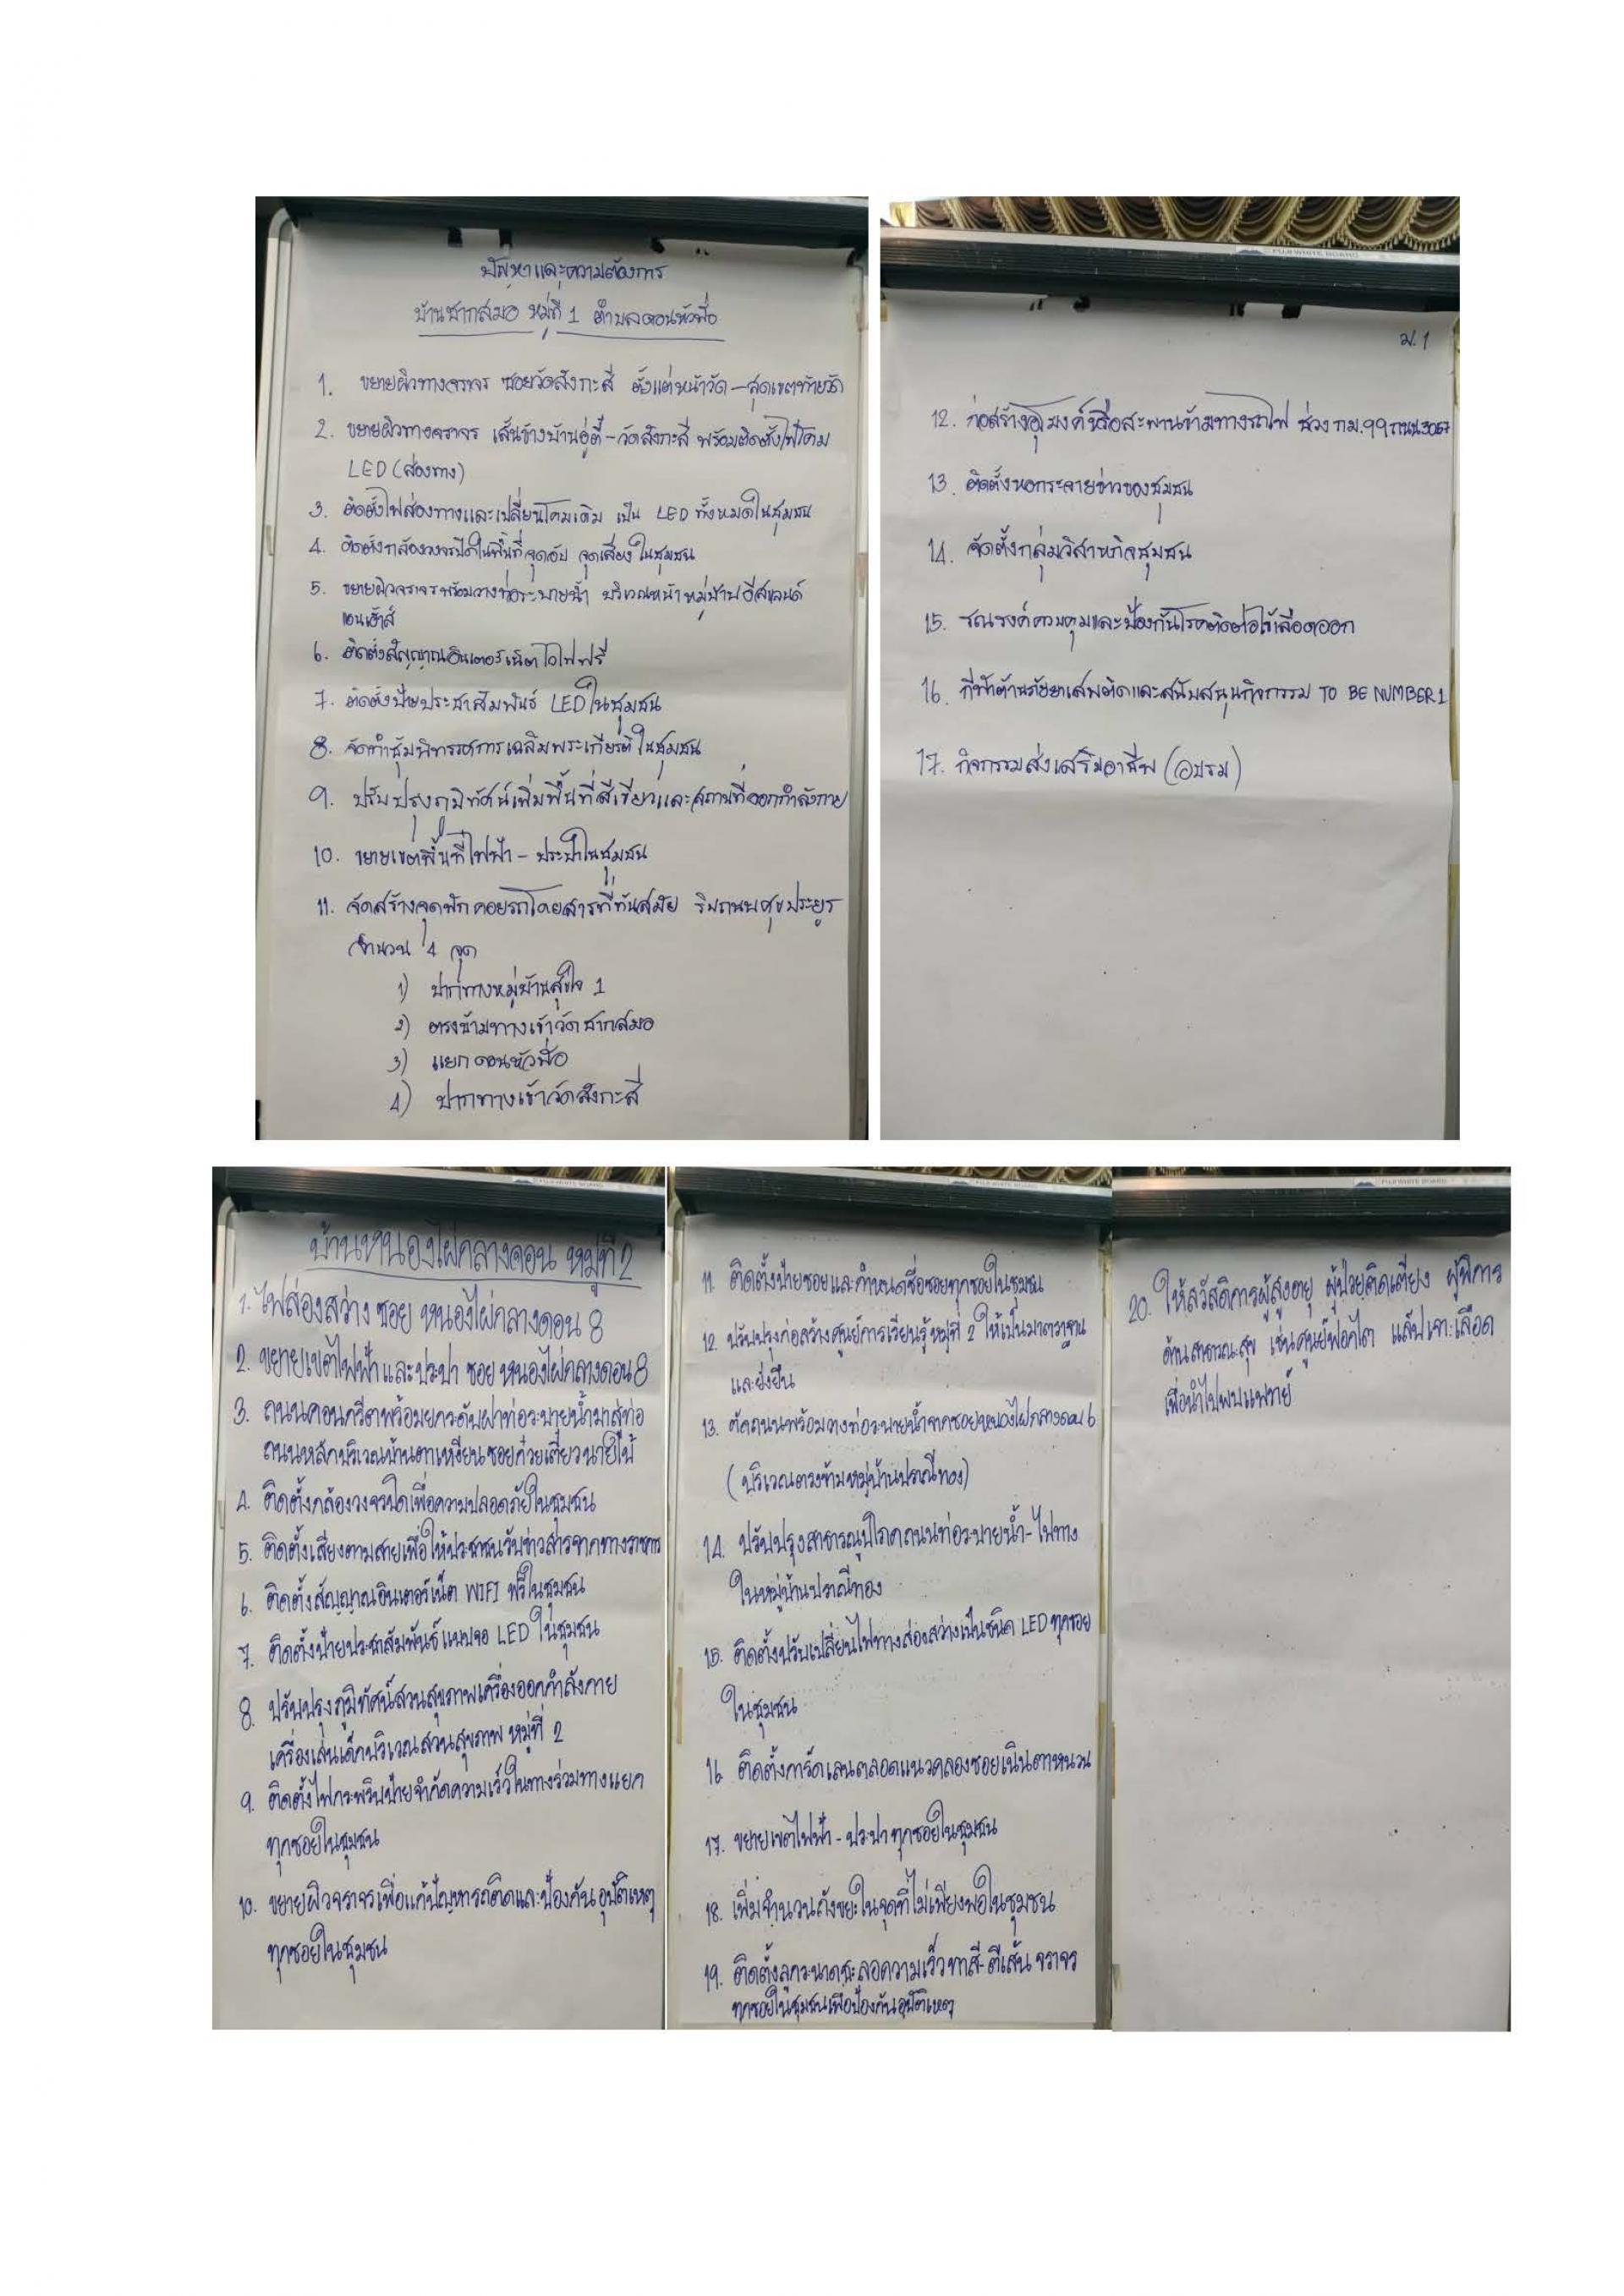 ปัญหาและความต้องการ
บ้านซากสมอ หมู่ที่ 1 ตำบลดอนหัวฬ่อ
1. ขยายผิวทางจราจร ซอยวัดสังกะสี ตั้งแต่หน้าวัด - สุดเขตท้ายวัด
2. ขยายผิวทางจราจร เส้นข้างบ้านอู่ตี้ - วัดสังกะสี พร้อมติดตั้งไฟโคม
LED (ส่องทาง)
3. ติดตั้งไฟส่องทางและเปลี่ยนโคมเดิม เป็น LED ทั้งหมดในชุมชน
4. ติดตั้งกล้องวงจรปิดในพื้นที่จุดอับ จุดเสี่ยงในชุมชน
5. ขยายผิวจราจรพร้อมวางท่อระบายน้ำ บริเวณหน้าหมู่บ้านอีสแลนด์
แอนเฮ้าส์
6. ติดตั้งสัญญาณอินเตอร์เน็ตไวไฟฟรี
7. ติดตั้งป้ายประชาสัมพันธ์ LED ในชุมชน
8. จัดทำซุ้มนิทรรศการเฉลิมพระเกียรติในชุมชน
9. ปรับปรุงภูมิทัศน์เพิ่มพื้นที่สีเขียวและสถานที่ออกกำลังกาย
10. ขยายเขตพื้นที่ไฟฟ้า - ประปาในชุมชน
11. จัดสร้างจุดพักคอยรถโดยสารที่ทันสมัย ริมถนนศุขประยูร
จำนวน 4 จุด
1) ปากทางหมู่บ้านสุขใจ 1
2) ตรงข้ามทางเข้าวัดซากสมอ
3) แยกดอนหัวฬ่อ
4) ปากทางเข้าวัดสังกะสี
FUJI WHITE BOARD
ม.1
12. ก่อสร้างอุโมงค์หรือสะพานข้ามทางรถไฟ ช่วง กม.99 ถนน 3067
13. ติดตั้งหอกระจายข่าวของชุมชน
14. จัดตั้งกลุ่มวิสาหกิจชุมชน
15. รณรงค์ควบคุมและป้องกันโรคติดต่อไข้เลือดออก
16. กีฬาต้านภัยยาเสพติดและสนับสนุนกิจกรรม TO BE NUMBER 1
17. กิจกรรมส่งเสริมอาชีพ (อบรม)
FUJI WHITE BOARD
บ้านหนองไผ่กลางดอน หมู่ที่ 2
1. ไฟส่องสว่าง ซอย หนองไผ่กลางดอน 8
2. ขยายเขตไฟฟ้า และประปา ซอย หนองไผ่กลางดอน 8
3. ถนนคอนกรีตพร้อมยกระดับฝาท่อระบายน้ำมาสู่ท่อ
ถนนหลักบริเวณบ้านตาเหงี่ยนซอยก๋วยเตี๋ยวนายโบ้
4. ติดตั้งกล้องวงจรปิดเพื่อความปลอดภัยในชุมชน
5. ติดตั้งเสียงตามสายเพื่อให้ประชาชนรับข่าวสารจากทางราชการ
6. ติดตั้งสัญญาณอินเตอร์เน็ต WIFI ฟรีในชุมชน
7. ติดตั้งป้ายประชาสัมพันธ์แบบจอ LED ในชุมชน
8. ปรับปรุงภูมิทัศน์สวนสุขภาพเครื่องออกกำลังกาย
เครื่องเล่นเด็กบริเวณสวนสุขภาพ หมู่ที่ 2
9. ติดตั้งไฟกระพริบป้ายจำกัดความเร็วในทางร่วมทางแยก
ทุกซอยในชุมชน
10. ขยายผิวจราจรเพื่อแก้ปัญหารถติดและป้องกันอุบัติเหตุ
ทุกซอยในชุมชน
FUJI WHITE BOARD
11. ติดตั้งป้ายซอยและกำหนดชื่อซอยทุกซอยในชุมชน
12. ปรับปรุงก่อสร้างศูนย์การเรียนรู้ หมู่ที่ 2 ให้เป็นมาตรฐาน
และยั่งยืน
13. ตัดถนนพร้อมวางท่อระบายน้ำจากซอยหนองไผ่กลางดอน 6
(บริเวณตรงข้ามหมู่บ้านปราณีทอง)
14. ปรับปรุงสาธารณูปโภคถนนท่อระบายน้ำ - ไฟทาง
ในหมู่บ้านปราณีทอง
15. ติดตั้งปรับเปลี่ยนไฟทางส่องสว่างเป็นชนิด LED ทุกซอย
ในชุมชน
16. ติดตั้งการ์ดเลนตลอดแนวคลองซอยเนินตาหนวน
17. ขยายเขตไฟฟ้า - ประปา ทุกซอยในชุมชน
18. เพิ่มจำนวนถังขยะในจุดที่ไม่เพียงพอในชุมชน
19. ติดตั้งลูกระนาดชะลอความเร็วทาสี-ตีเส้น จราจร
ทุกซอยในชุมชนเพื่อป้องกันอุบัติเหตุ
FUJI WHITE BOARD
20. ให้สวัสดิการผู้สูงอายุ ผู้ป่วยติดเตียง ผู้พิการ
ด้านสาธารณสุข เช่นศูนย์ฟอกไต แล็ปเจาะเลือด
เพื่อนำไปพบแพทย์